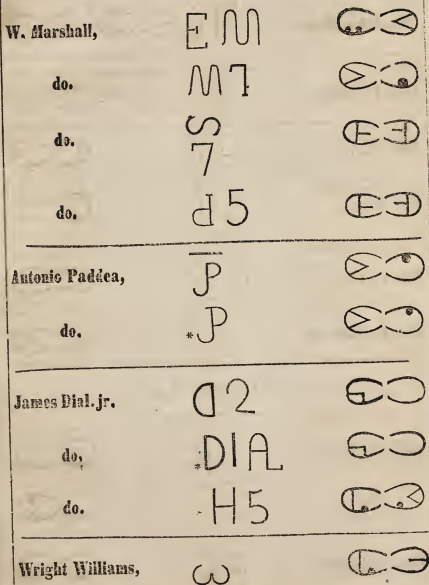 W. Marshall, EM
do. M7
do. S 7
do. d5
Antonio Paddea, P
do. *P
James Dial. jr. D2
do, *DIA
do. H5
Wright Williams,